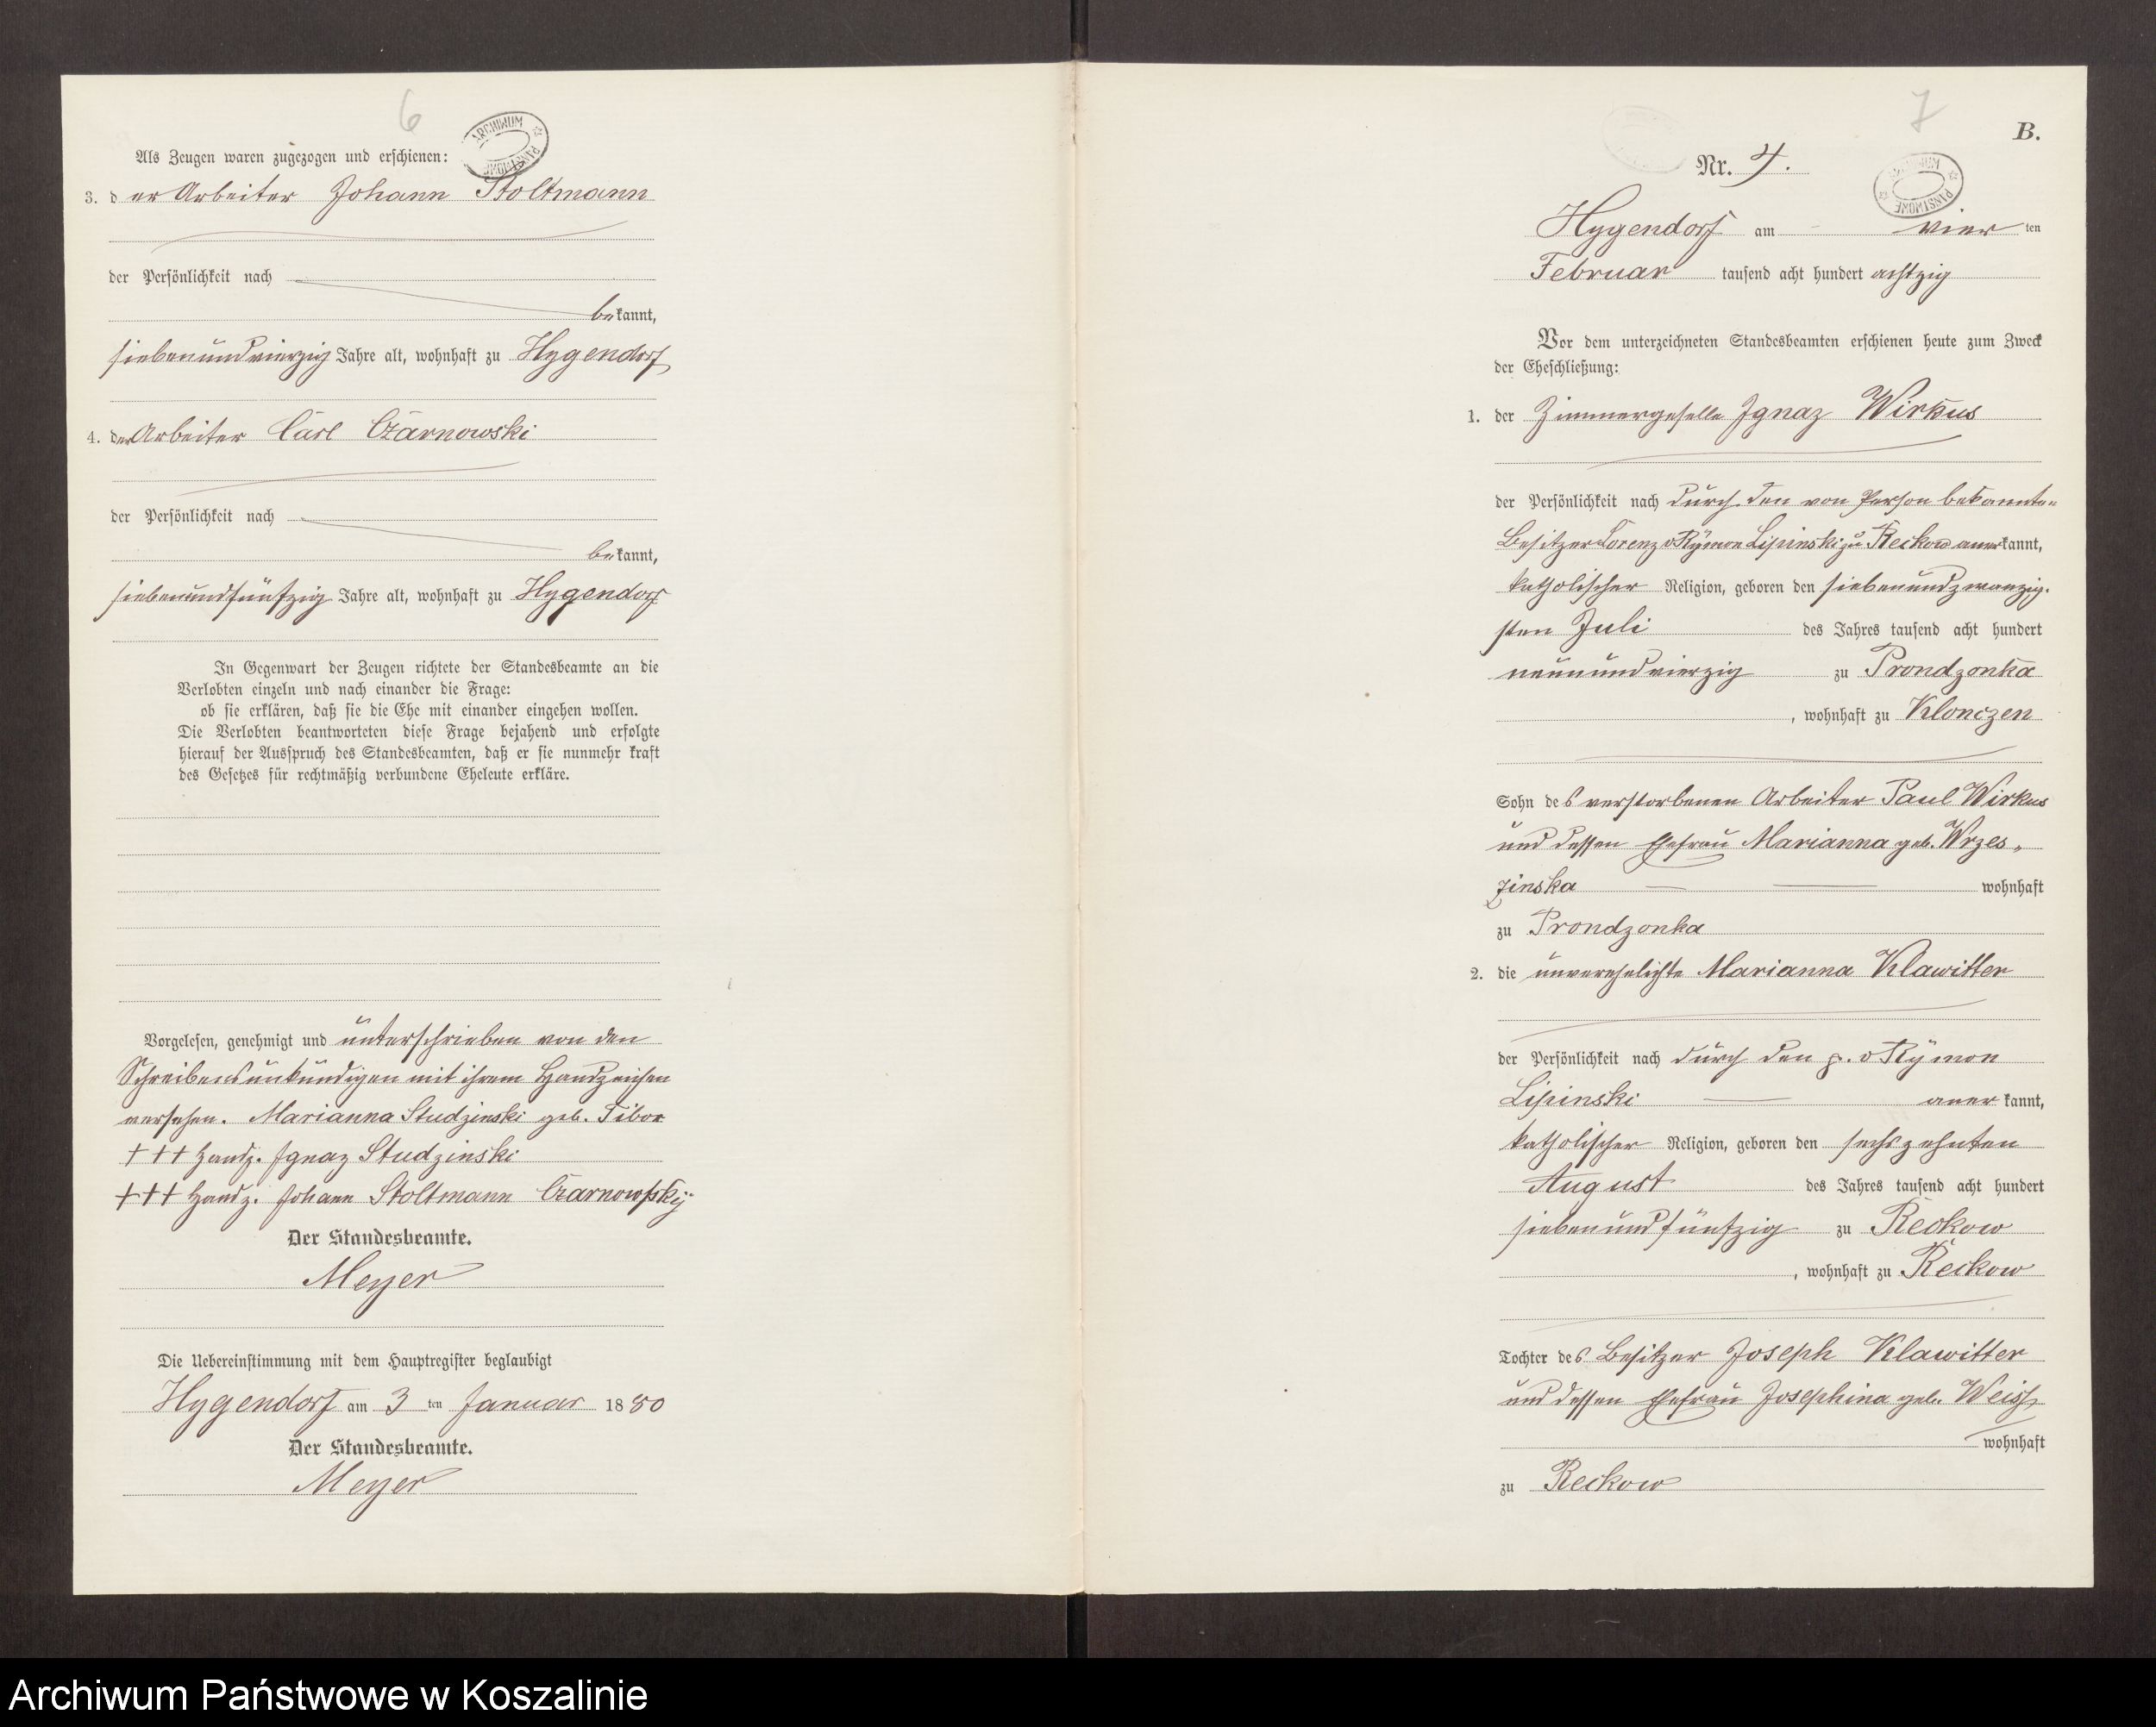 6
ARCHIWUM PAŃSTWOWE
Als Zeugen waren zugezogen und erschienen:
3. der Arbeiter Johann Stoltmann
der Persönlichkeit nach
bekannt,
siebenundvierzig Jahre alt, wohnhaft zu Hygendorf
4. der Arbeiter Carl Czarnowski
der Persönlichkeit nach
bekannt,
siebenundfünfzig Jahre alt, wohnhaft zu Hygendorf
In Gegenwart der Zeugen richtete der Standesbeamte an die
Verlobten einzeln und nach einander die Frage:
ob sie erklären, daß sie die Ehe mit einander eingehen wollen.
Die Verlobten beantworteten diese Frage bejahend und erfolgte
hierauf der Ausspruch des Standesbeamten, daß er sie nunmehr kraft
des Gesetzes für rechtmäßig verbundene Eheleute erkläre.
Vorgelesen, genehmigt und unterschrieben von den
Schreibensunkundigen mit ihrem Handzeichen
versehen. Marianna Studzinski geb. Tibor
+++ Handz. Ignaz Studzinski
+++ Handz. Johann Stoltmann Czarnowsky
Der Standesbeamte.
Meyer
Die Uebereinstimmung mit dem Hauptregister beglaubigt
Hygendorf am 3 ten Januar 1880
Der Standesbeamte.
Meyer
7
B.
Nr. 4.
PAŃSTWOWE
Hygendorf am vier ten
Februar tausend acht hundert achtzig
Vor dem unterzeichneten Standesbeamten erschienen heute zum Zweck
der Eheschließung:
1. der Zimmergeselle Ignaz Wirkus
der Persönlichkeit nach durch den von Person bekannten
Besitzer Lorenz v Rymon Lipinski zu Reckow anerkannt,
katholischer Religion, geboren den siebenundzwanzig-
sten Juli des Jahres tausend acht hundert
neunundvierzig zu Prondzonka
, wohnhaft zu Klonczen
Sohn des verstorbenen Arbeiter Paul Wirkus
und dessen Ehefrau Marianna geb. Wrzes„
zinska wohnhaft
zu Prondzonka
2. die unverehelichte Marianna Klawitter
der Persönlichkeit nach durch den p. v Rymon
Lipinski anerkannt,
katholischer Religion, geboren den sechszehnten
August des Jahres tausend acht hundert
siebenundfünfzig zu Reckow
, wohnhaft zu Reckow
Tochter des Besitzer Joseph Klawitter
und dessen Ehefrau Josephina geb. Weiss
wohnhaft
zu Reckow
Archiwum Państwowe w Koszalinie